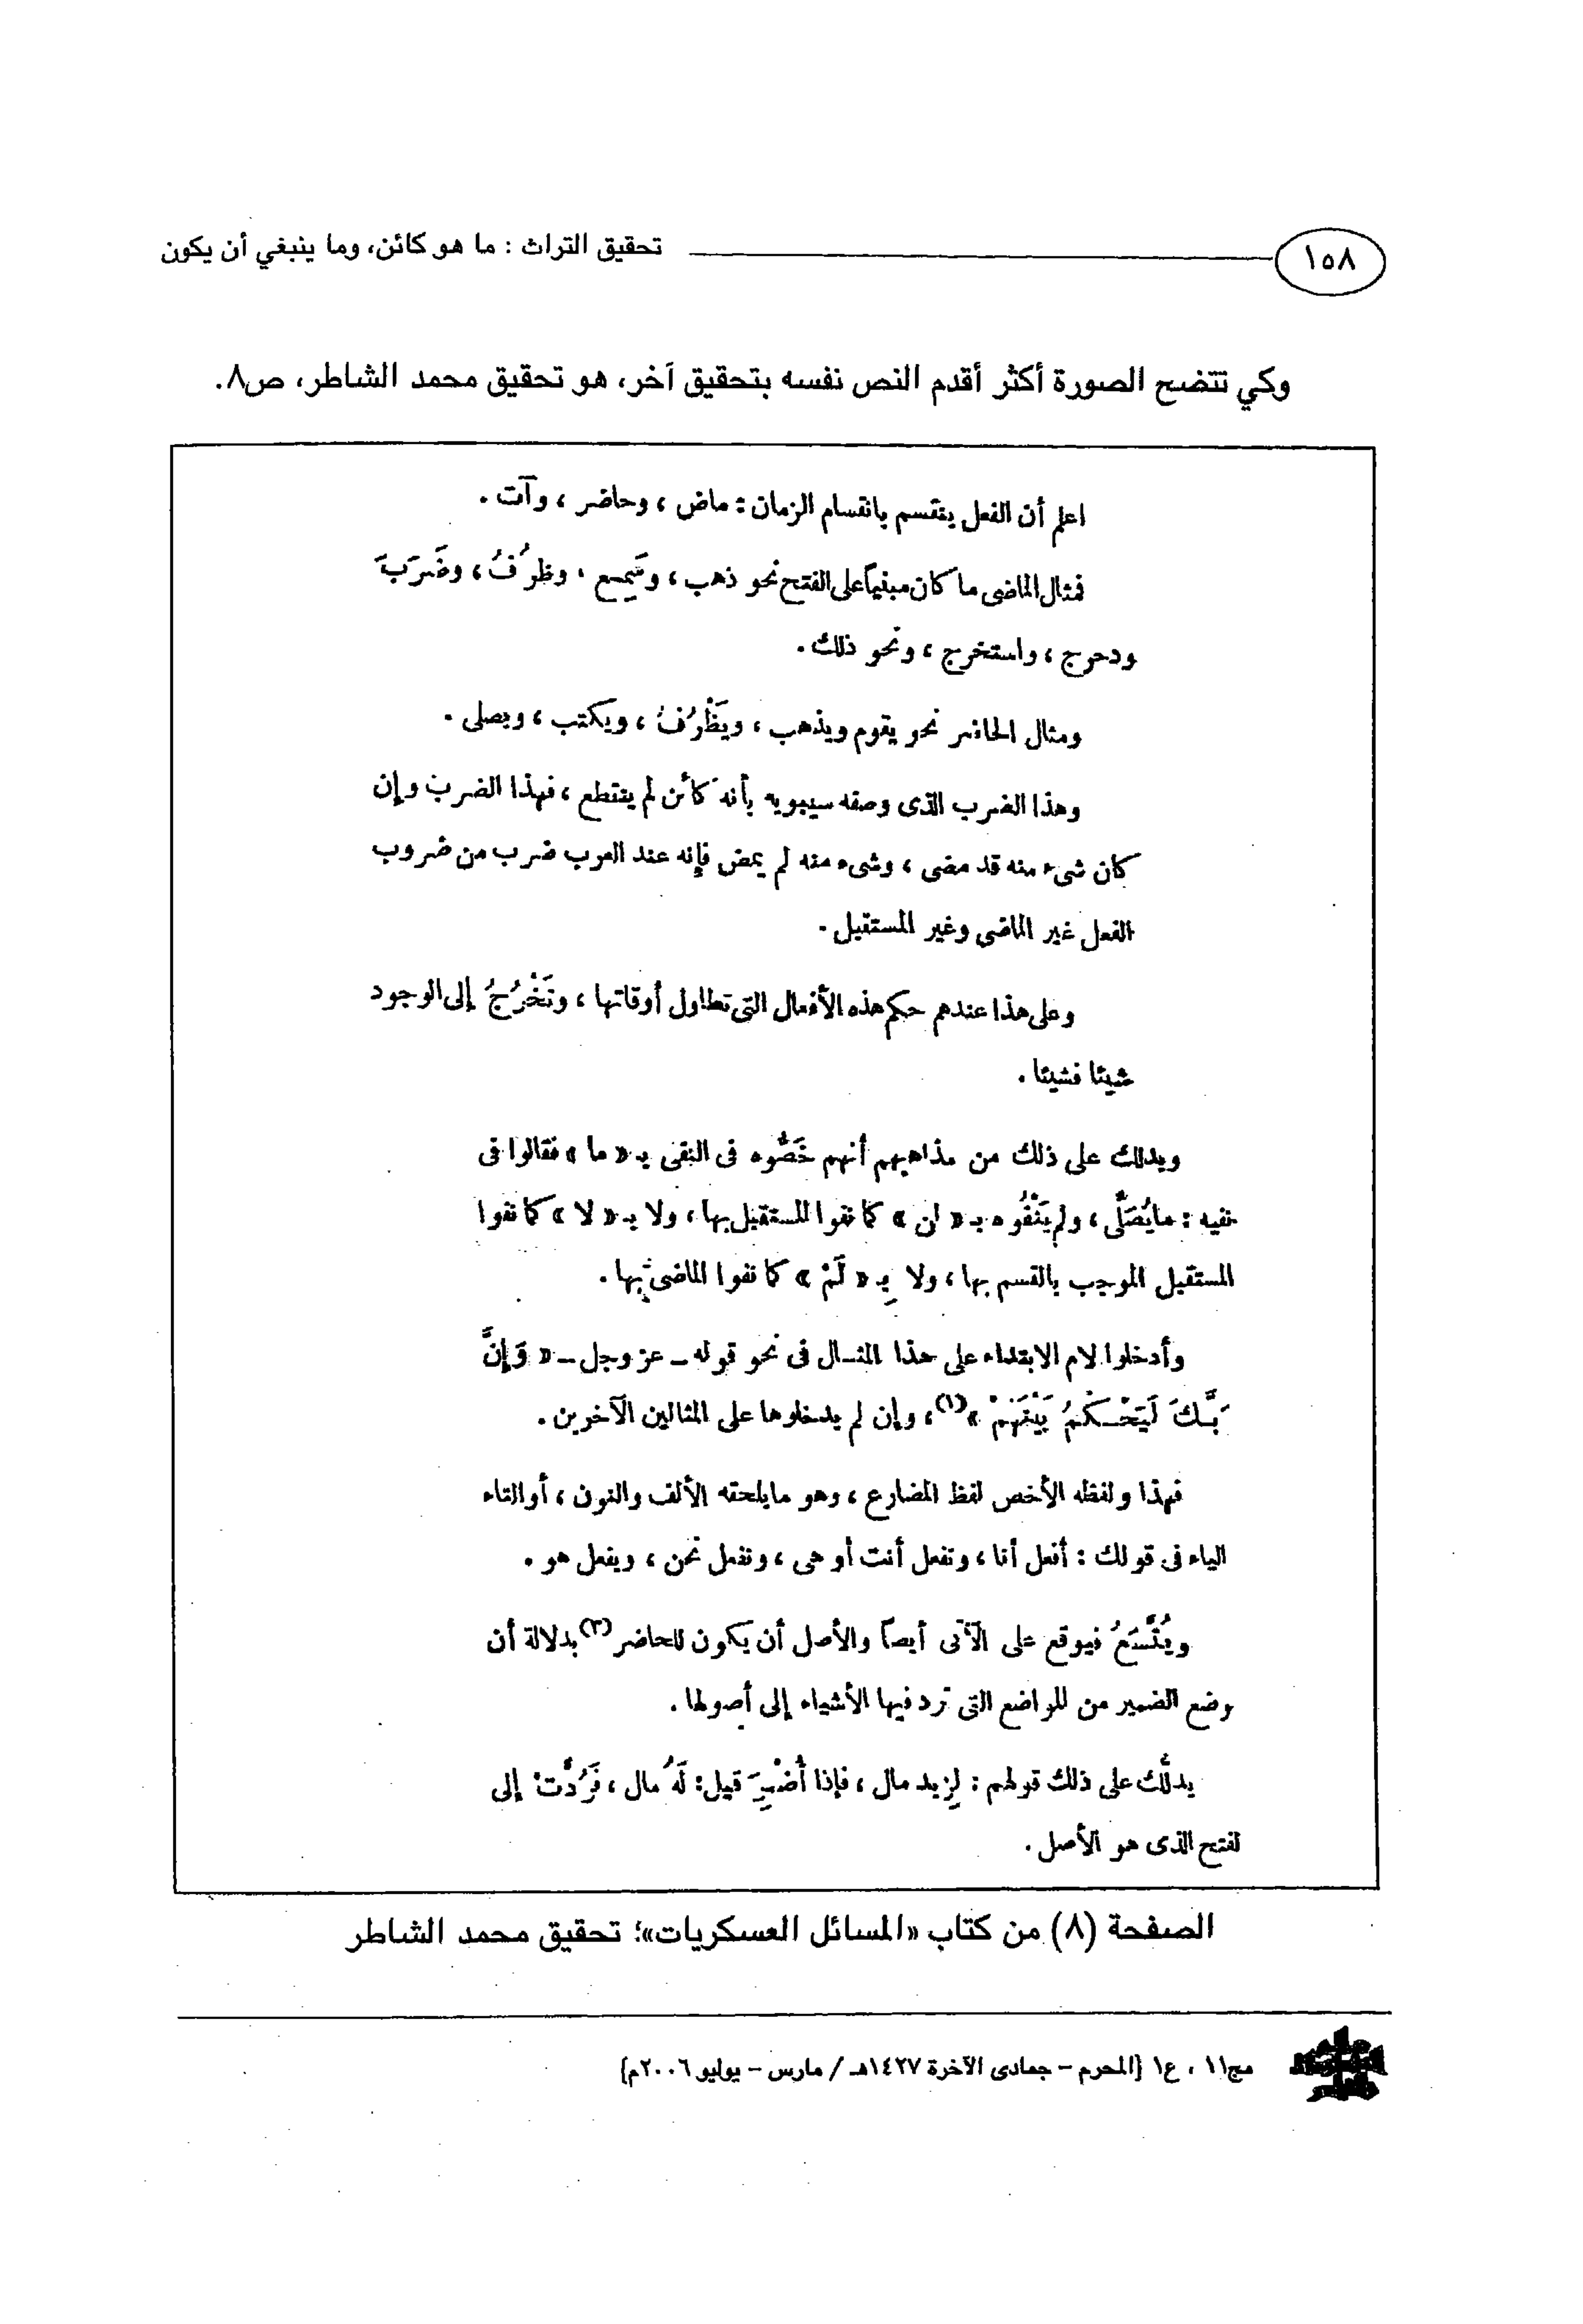 ١٥٨
تحقيق التراث : ما هو كائن، وما ينبغي أن يكون
وكي تتضح الصورة أكثر أقدم النص نفسه بتحقيق آخر، هو تحقيق محمد الشاطر، ص٨.
اعلم أن الفعل ينقسم بانقسام الزمان : ماض ، وحاضر ، وآت .
فمثال الماضى ما كان مبنياً على الفتح نحو ذهب ، وسَمِع ، وظرُفَ ، وضَرَبَ
ودحرج ، واستخرج ، ونحو ذلك .
ومثال الحاضر نحو يقوم ويذهب ، ويَظْرُفُ ، ويكتب ، ويصلى .
وهذا الضرب الذى وصفه سيبويه بأنه كائن لم ينقطع ، فهذا الضرب وإن
كان شىء منه قد مضى ، وشىء منه لم يمض فإنه عند العرب ضرب من ضروب
الفعل غير الماضى وغير المستقبل .
وعلى هذا عندهم حكم هذه الأفعال التى تطاول أوقاتها ، وتَخْرُجُ إلى الوجود
شيئا فشيئا .
ويدلك على ذلك من مذاهبهم أنهم خَصُّوه فى النفى بـ « ما » فقالوا فى
نفيه : ما يُصَلِّى ، ولم يَنْفُوه بـ « لن » كما نفوا المستقبل بها ، ولا بـ « لا » كما نفوا
المستقبل الموجب بالقسم بها ، ولا بِـ « لَمْ » كما نفوا الماضى بها .
وأدخلوا لام الابتداء على هذا المثـال فى نحو قوله ــ عز وجل ــ « وَإِنَّ
رَبَّـكَ لَيَحْـكُمُ بَيْنَهُمْ »(١)، وإن لم يدخلوها على المثالين الآخرين .
فهذا ولفظه الأخص لفظ المضارع ، وهو ما يلحقه الألف والنون ، أو التاء
الياء فى قولك : أفعل أنا ، وتفعل أنت أو هى ، ونفعل نحن ، ويفعل هو .
ويُتَّسَعُ فيوقع على الآتى أيضاً والأصل أن يكون للحاضر(٢) بدلالة أن
وضع الضمير من المواضع التى ترد فيها الأشياء إلى أصولها .
يدلُّك على ذلك قولهم : لِزيد مال ، فإذا أُضْمِرَ قيل : لَهُ مال ، فَرُدَّت إلى
لفتح الذى هو الأصل .
الصفحة (٨) من كتاب «المسائل العسكريات»؛ تحقيق محمد الشاطر
مج١١ ، ع١ (المحرم – جمادى الآخرة ١٤٢٧هـ / مارس – يوليو ٢٠٠٦م)